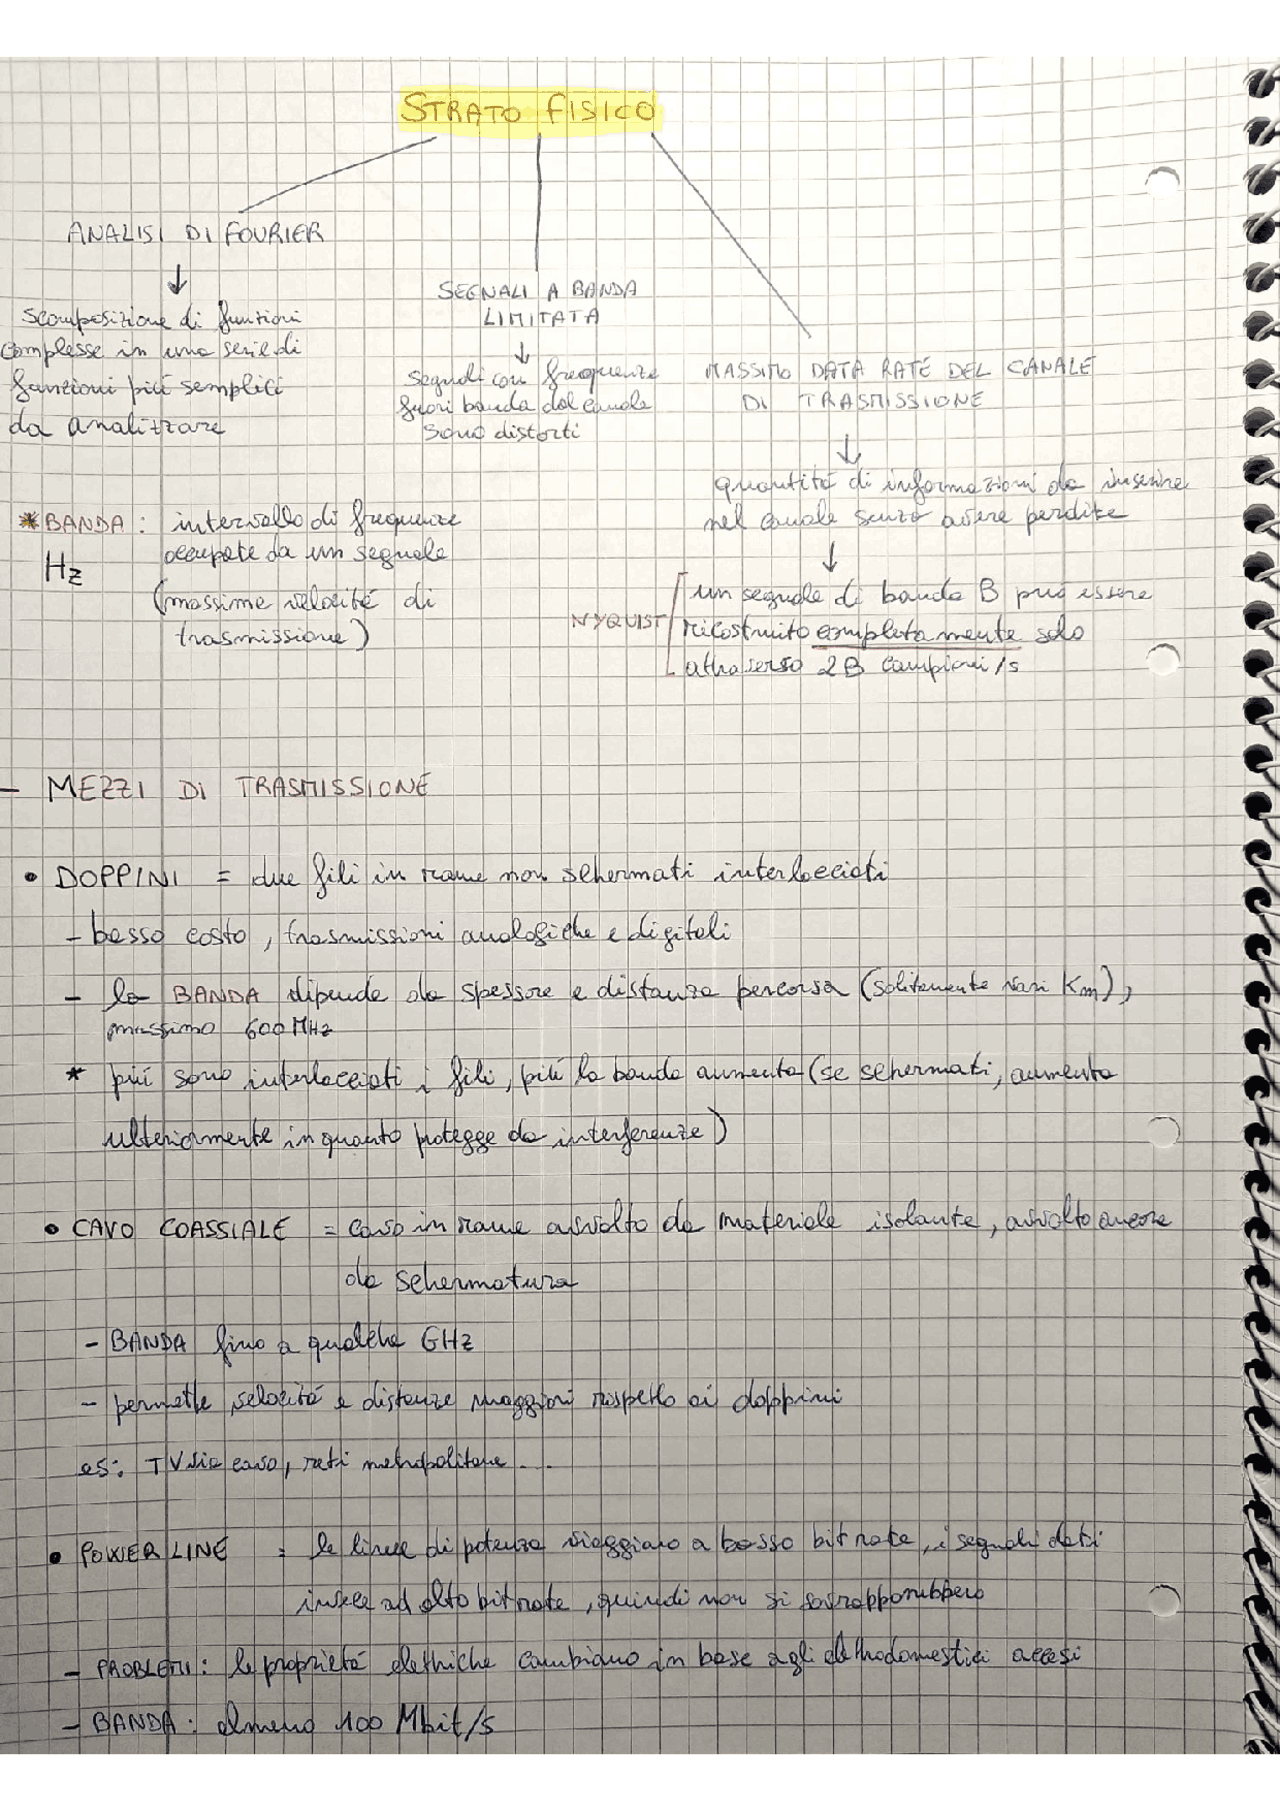 STRATO FISICO
ANALISI DI FOURIER
↓
scomposizione di funzioni
complesse in una serie di
funzioni più semplici
da analizzare
SEGNALI A BANDA
LIMITATA
↓
segnali con frequenze
fuori banda dal canale
sono distorti
MASSIMO DATA RATE DEL CANALE
DI TRASMISSIONE
↓
quantità di informazioni da inserire
nel canale senza avere perdite
↓
NYQUIST
un segnale di banda B può essere
ricostruito completamente solo
attraverso 2B campioni/s
* BANDA: intervallo di frequenze
occupate da un segnale
Hz
(massima velocità di
trasmissione)
- MEZZI DI TRASMISSIONE
• DOPPINI = due fili in rame non schermati interlacciati
- basso costo, trasmissioni analogiche e digitali
- la BANDA dipende da spessore e distanza percorsa (solitamente vari Km),
massimo 600 MHz
* più sono interlacciati i fili, più la banda aumenta (se schermati, aumenta
ulteriormente in quanto protegge da interferenze)
• CAVO COASSIALE = cavo in rame avvolto da materiale isolante, avvolto ancora
da schermatura
- BANDA fino a qualche GHz
- permette velocità e distanze maggiori rispetto ai doppini
es: TV via cavo, reti metropolitane...
• POWER LINE = le linee di potenza viaggiano a basso bit rate, i segnali dati
invece ad alto bit rate, quindi non si sovrapporrebbero
- PROBLEMI: le proprietà elettriche cambiano in base agli elettrodomestici accesi
- BANDA: almeno 100 Mbit/s